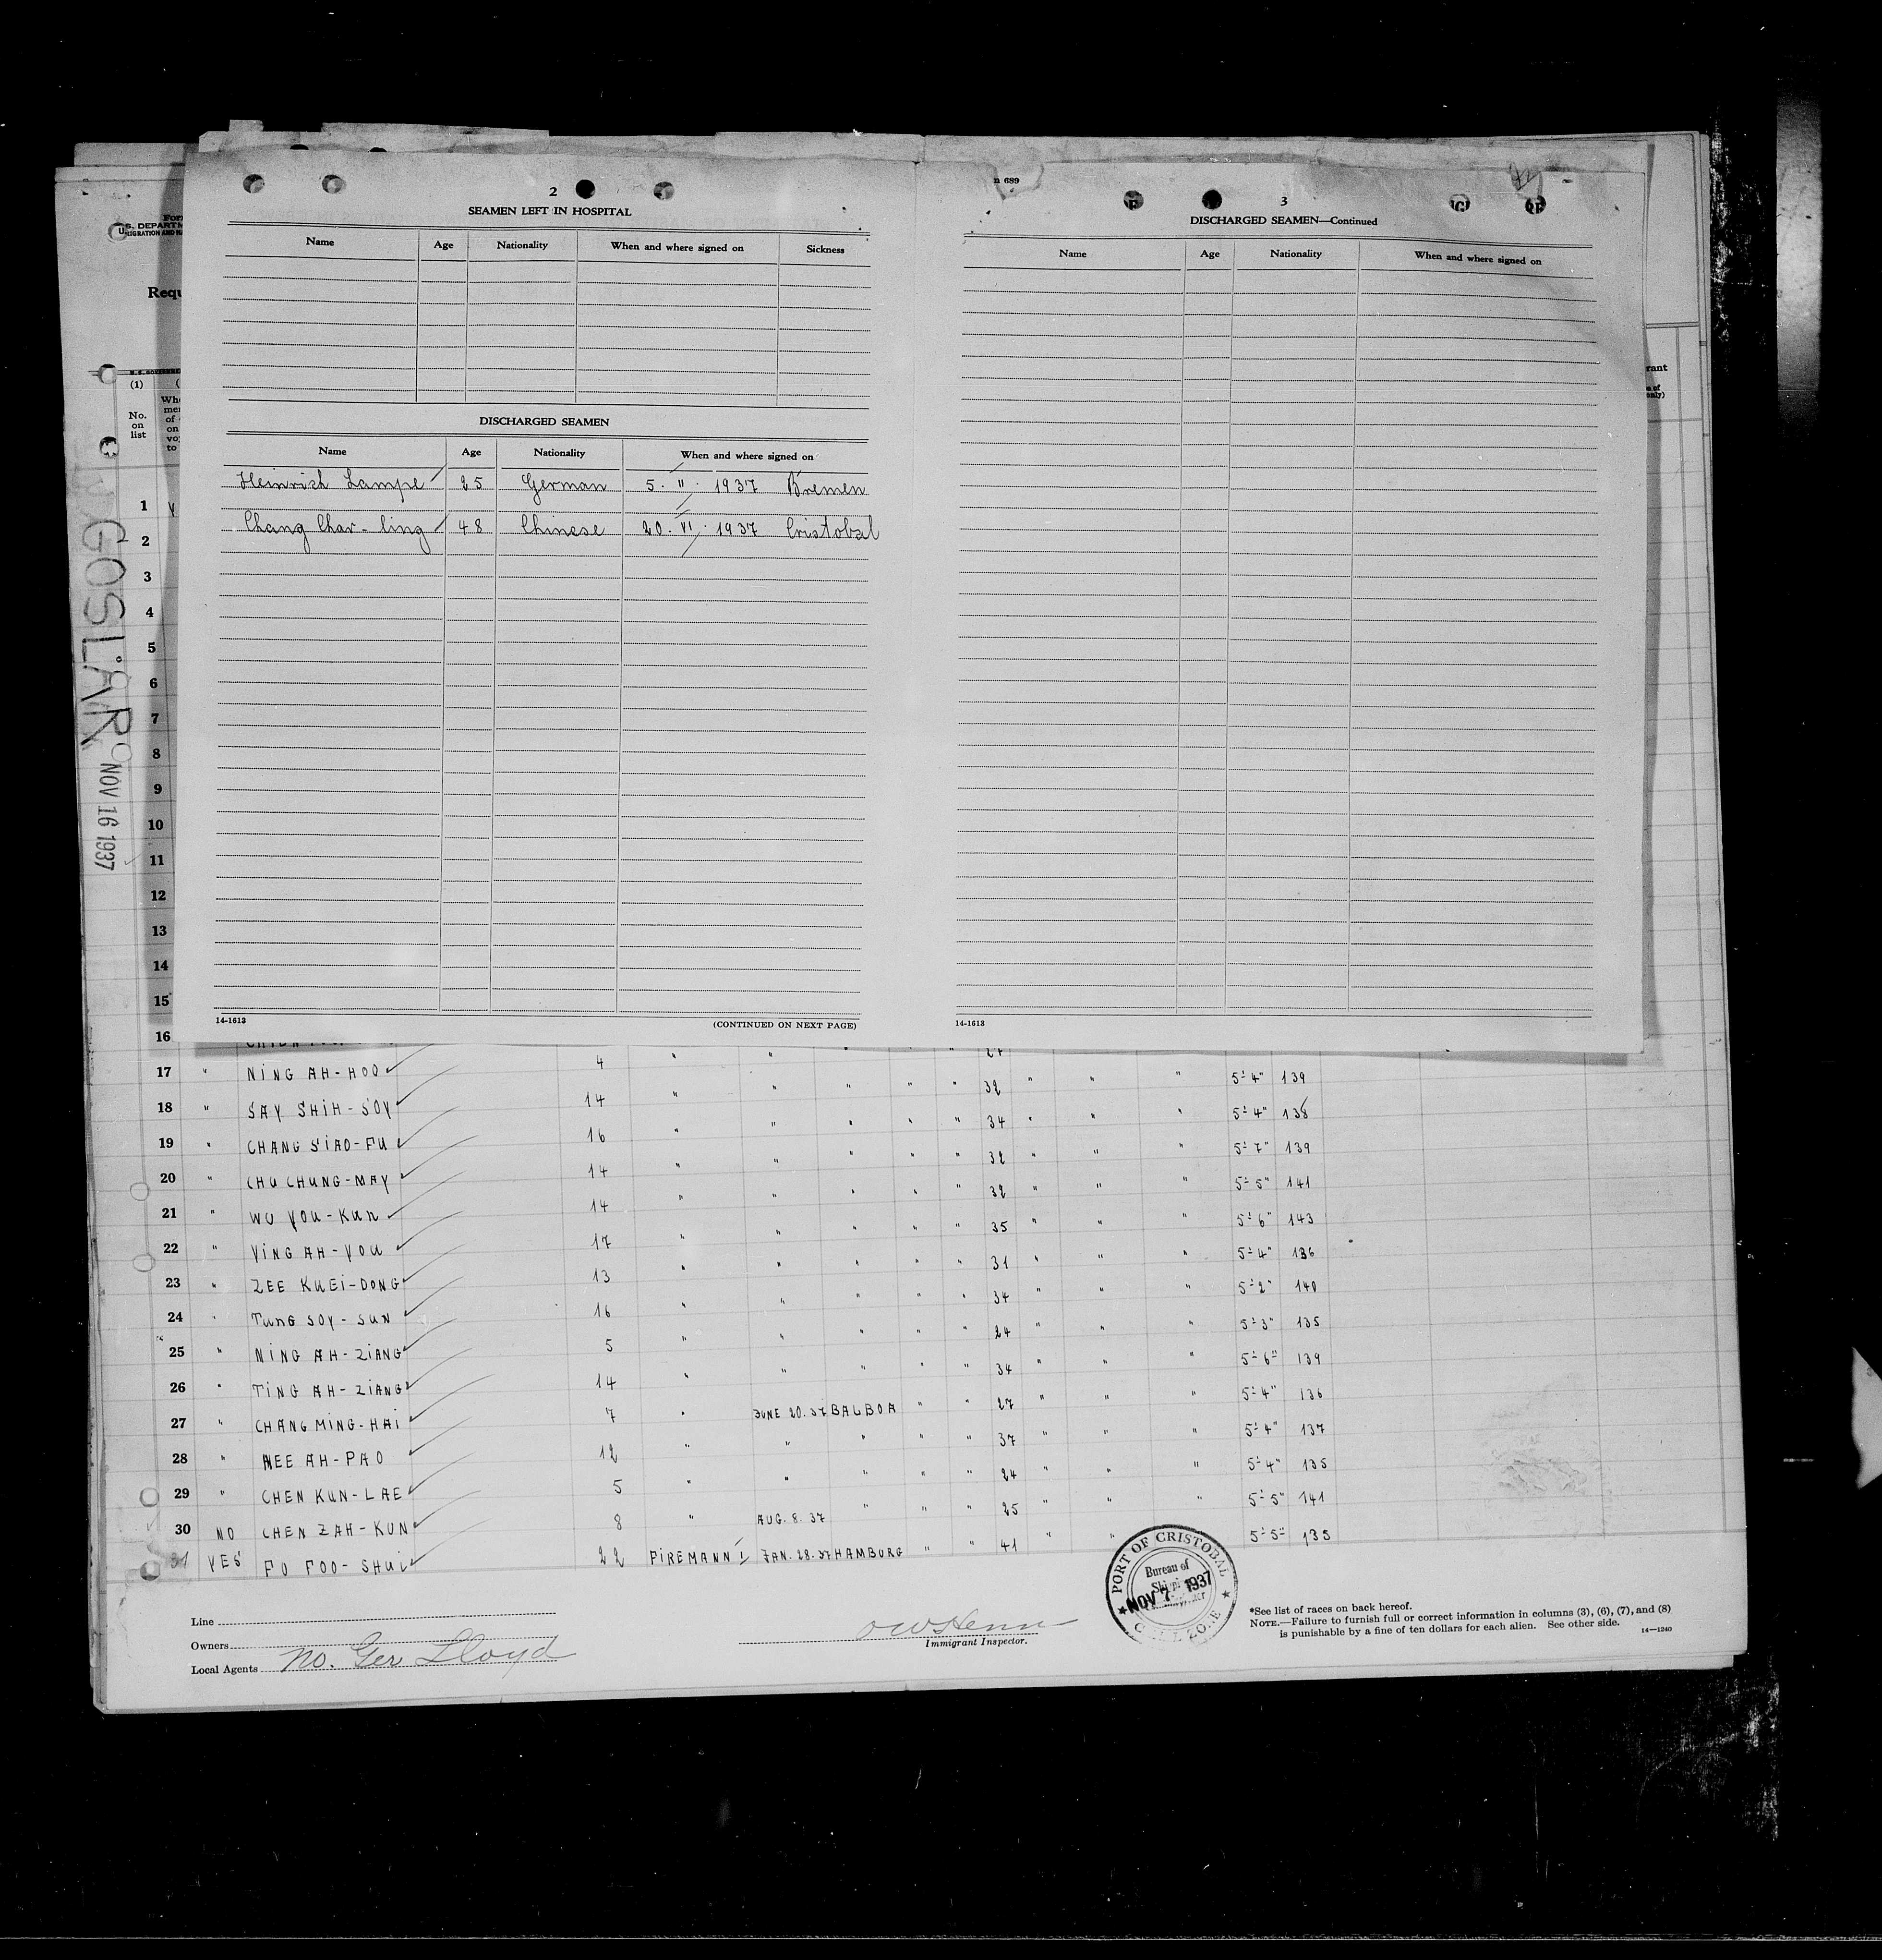 2
SEAMEN LEFT IN HOSPITAL
Name Age Nationality When and where signed on Sickness
DISCHARGED SEAMEN
Name Age Nationality When and where signed on
Heinrich Lampe 25 German 5. II. 1937 Bremen
Chang Char-ling 48 Chinese 20. VI. 1937 Cristobal
14-1613 (CONTINUED ON NEXT PAGE)
n 689
3
DISCHARGED SEAMEN—Continued
Name Age Nationality When and where signed on
14-1613
Form
U.S. DEPARTM
Requ
(1)
No. on list
GOSLAR
NOV 16 1937
1
2
3
4
5
6
7
8
9
10
11
12
13
14
15
16
17 " NING AH-HOO 4 " " " " " 32 " " " 5'-4" 139
18 " SAY SHIH-SOY 14 " " " " " 34 " " " 5'-4" 138
19 " CHANG SIAO-FU 16 " " " " " 32 " " " 5'-7" 139
20 " CHU CHUNG-MAY 14 " " " " " 32 " " " 5'-5" 141
21 " WU YOU-KUN 14 " " " " " 35 " " " 5'-6" 143
22 " YING AH-YOU 17 " " " " " 31 " " " 5'-4" 136
23 " ZEE KUEI-DONG 13 " " " " " 34 " " " 5'-2" 140
24 " TUNG SOY-SUN 16 " " " " " 24 " " " 5'-3" 135
25 " NING AH-ZIANG 5 " " " " " 34 " " " 5'-6" 139
26 " TING AH-ZIANG 14 " " " " " 27 " " " 5'-4" 136
27 " CHANG MING-HAI 7 " JUNE 20. 37 BALBOA " " 37 " " " 5'-4" 137
28 " NEE AH-PAO 12 " " " " " 24 " " " 5'-4" 135
29 " CHEN KUN-LAE 5 " " " " " 25 " " " 5'-5" 141
30 NO CHEN ZAH-KUN 8 " AUG. 8. 37 " " " 41 " " 5'-5" 135
31 YES FO FOO-SHUI 22 FIREMANN I JAN. 28. 37 HAMBURG " "
PORT OF CRISTOBAL
Bureau of
NOV 7- 1937
Line
Owners
Local Agents No. Ger Lloyd
Immigrant Inspector.
*See list of races on back hereof.
NOTE.—Failure to furnish full or correct information in columns (3), (6), (7), and (8)
is punishable by a fine of ten dollars for each alien. See other side.
14—1240